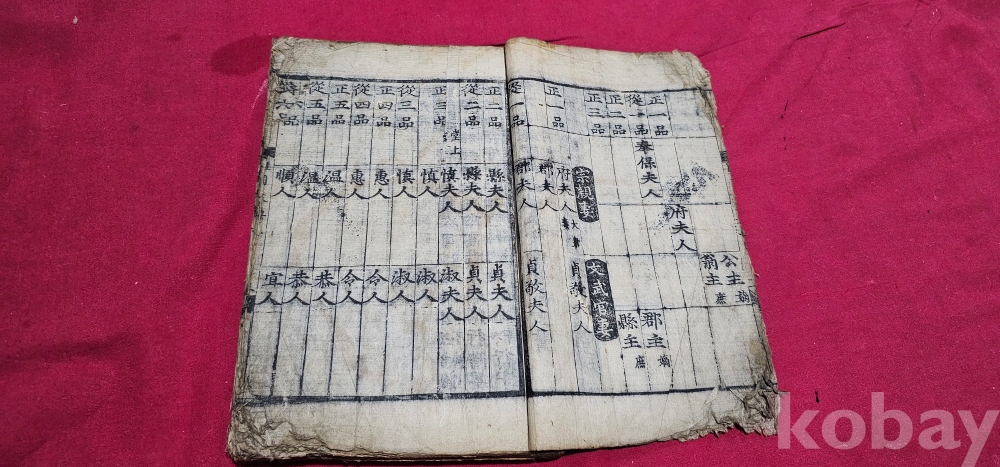 公主 嫡
翁主 庶
正一品 府夫人
郡主 嫡
從一品 奉保夫人
縣主 庶
正二品
正三品
宗親妻 文武官妻
正一品 府夫人 大君妻 貞敬夫人
郡夫人
從一品 郡夫人 貞敬夫人
正二品 縣夫人 貞夫人
從二品 縣夫人 貞夫人
正三品 堂上 愼夫人 淑夫人
愼人 淑人
從三品 愼人 淑人
正四品 惠人 令人
從四品 惠人 令人
正五品 溫人 恭人
從五品 溫人 恭人
六品 順人 宜人
kobay